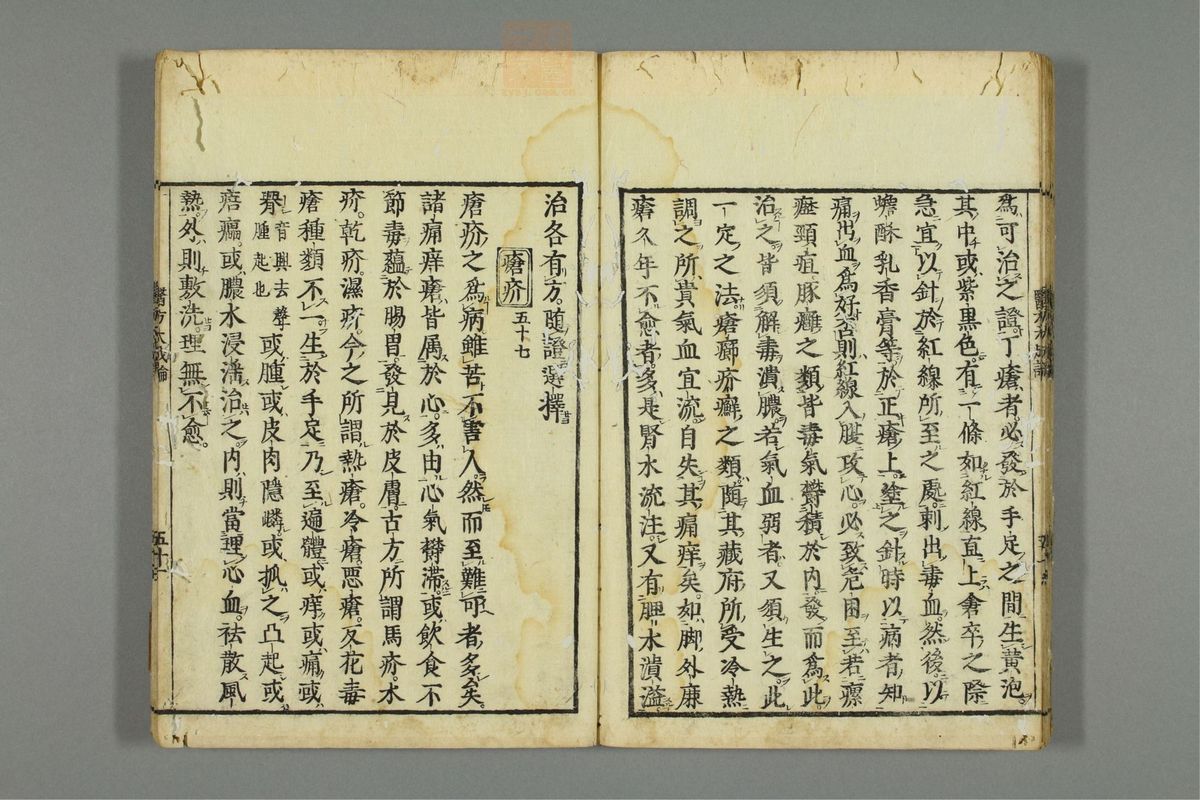 爲可治之證丁瘡者必發於手足之間生黄泡
其中或紫黒色有一條如紅線直上倉卒之際
急宜以針於紅線所至之處刺出毒血然後以
蟾酥乳香膏等於正瘡上塗之針時以病者知
痛出血爲好否則紅線入腹攻心必致危困至若瘭
癧頸疽豚癰之類皆毒氣欝積於内發而爲此
治之皆須解毒潰膿若氣血弱者又須生之此
一定之法瘡癤疥癬之類随其藏府所受冷熱
調之所貴氣血宜流自失其痛痒矣如脚外廉
瘡久年不愈者多是腎水流注又有脾水潰溢
治各有方随證選擇
瘡疥 五十七
瘡疥之爲病雖苦不害人然而至難可者多矣
諸痛痒瘡皆属於心多由心氣欝滞或飲食不
節毒蘊於腸胃發見於皮膚古方所謂馬疥水
疥乾疥濕疥今之所謂熱瘡冷瘡悪瘡反花毒
瘡種類不一生於手足乃至遍體或痒或痛或
音興去聲
腫起也
或腫或皮肉隠嶙或抓之凸起或
瘖㿔或膿水浸滛治之内則當理心血祛散風
熱外則敷洗理無不愈